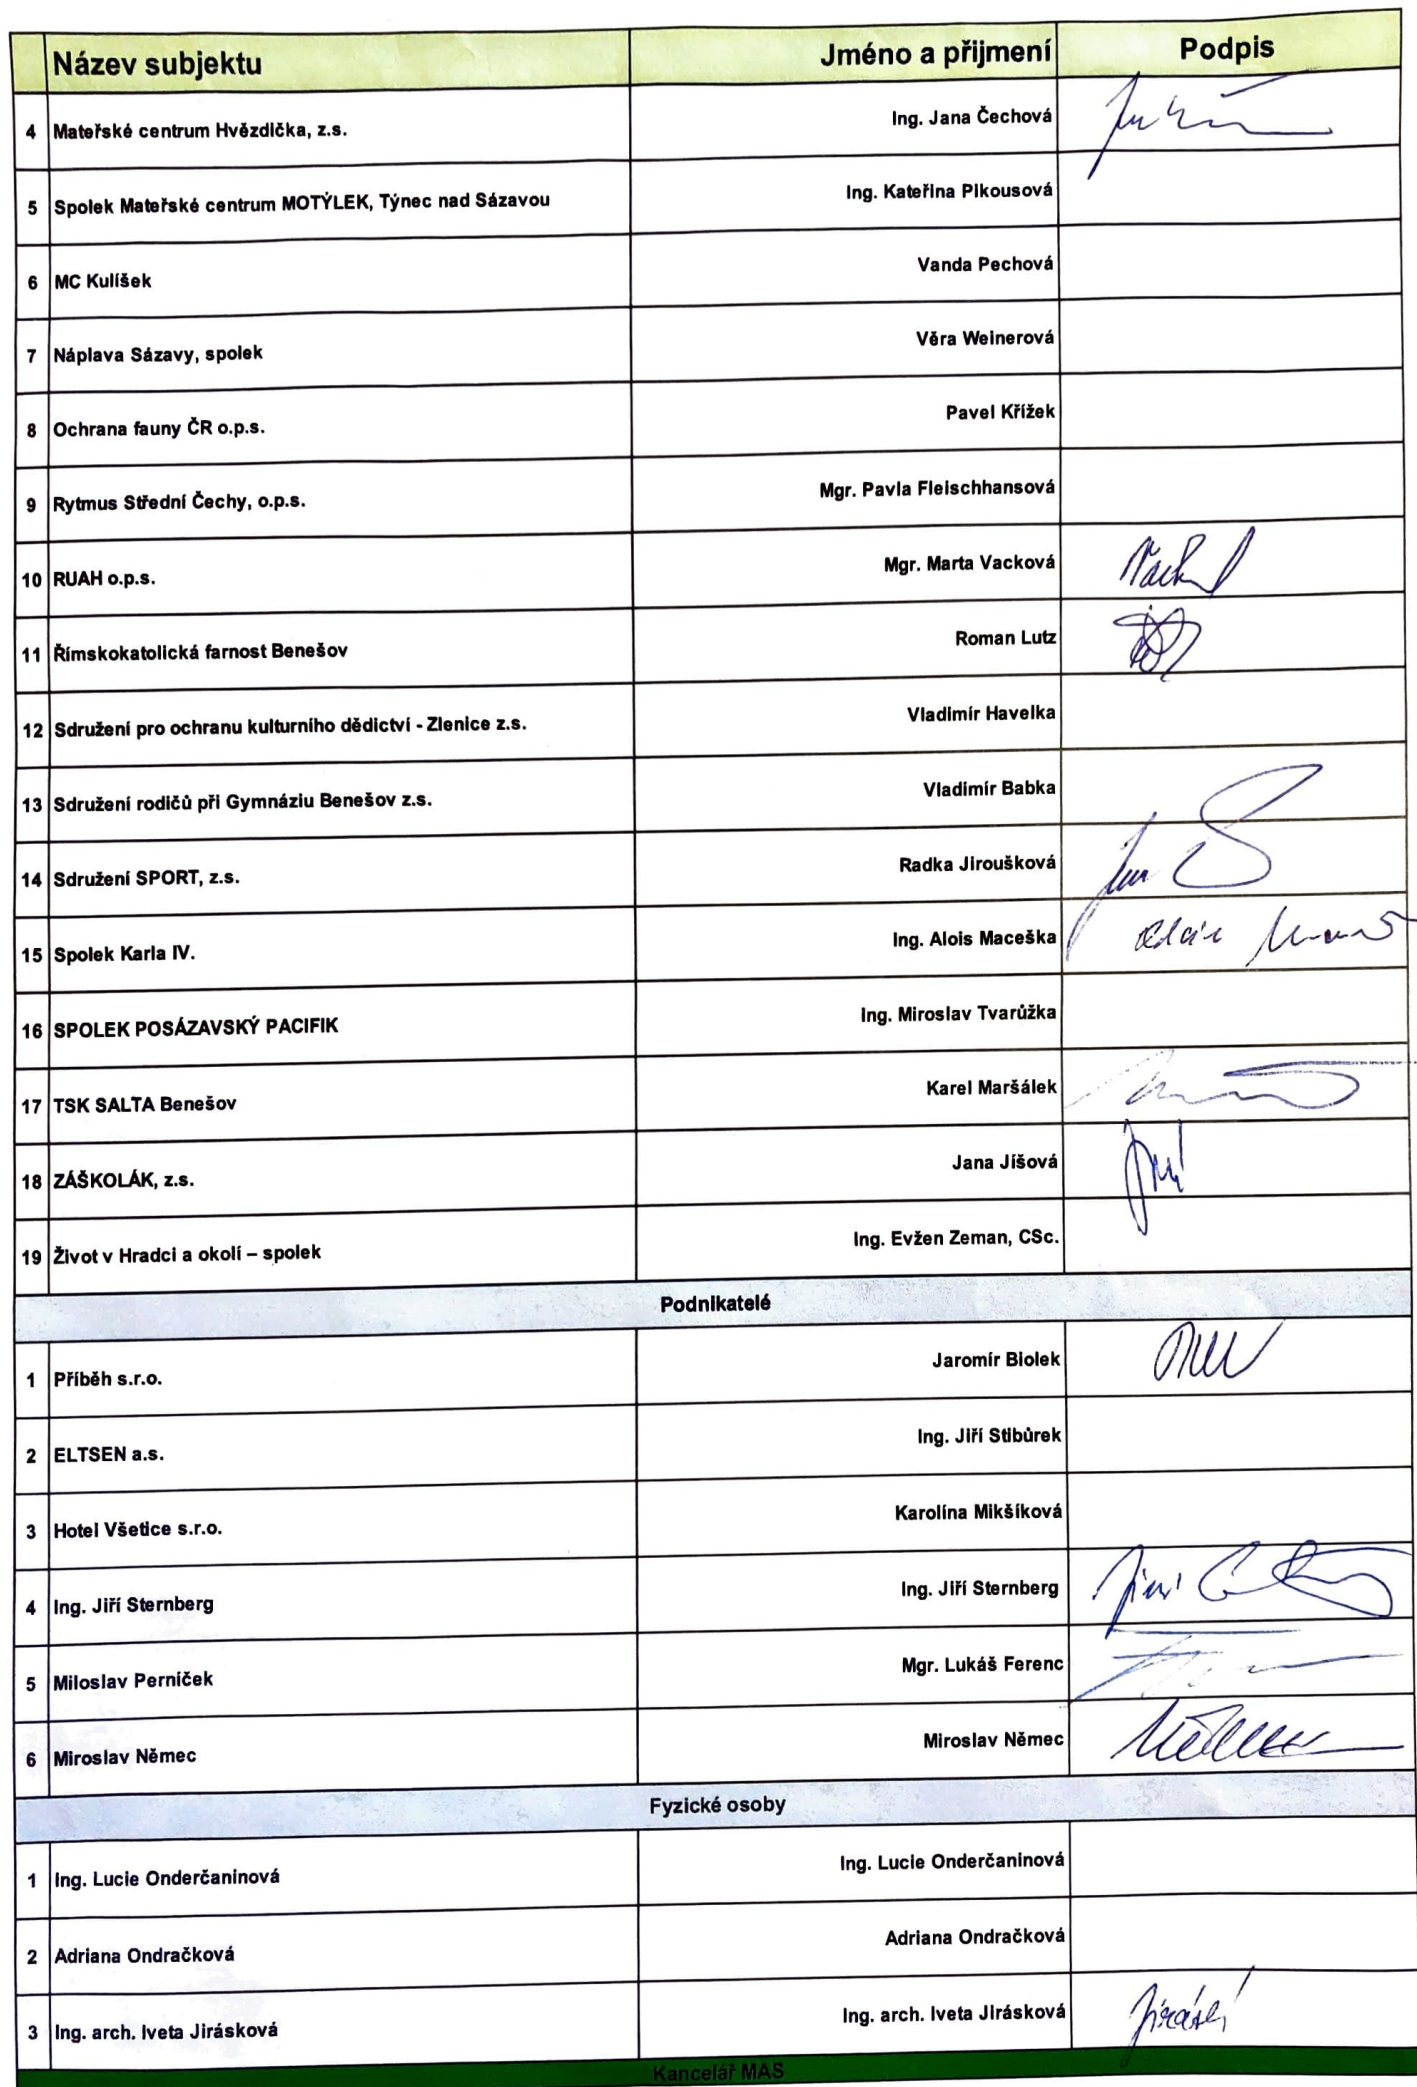 Název subjektu Jméno a přijmení Podpis
4 Mateřské centrum Hvězdička, z.s. Ing. Jana Čechová
5 Spolek Mateřské centrum MOTÝLEK, Týnec nad Sázavou Ing. Kateřina Pikousová
6 MC Kulíšek Vanda Pechová
7 Náplava Sázavy, spolek Věra Weinerová
8 Ochrana fauny ČR o.p.s. Pavel Křížek
9 Rytmus Střední Čechy, o.p.s. Mgr. Pavla Fleischhansová
10 RUAH o.p.s. Mgr. Marta Vacková
11 Římskokatolická farnost Benešov Roman Lutz
12 Sdružení pro ochranu kulturního dědictví - Zlenice z.s. Vladimír Havelka
13 Sdružení rodičů při Gymnáziu Benešov z.s. Vladimír Babka
14 Sdružení SPORT, z.s. Radka Jiroušková
15 Spolek Karla IV. Ing. Alois Maceška
16 SPOLEK POSÁZAVSKÝ PACIFIK Ing. Miroslav Tvarůžka
17 TSK SALTA Benešov Karel Maršálek
18 ZÁŠKOLÁK, z.s. Jana Jíšová
19 Život v Hradci a okolí – spolek Ing. Evžen Zeman, CSc.
Podnikatelé
1 Příběh s.r.o. Jaromír Biolek
2 ELTSEN a.s. Ing. Jiří Stibůrek
3 Hotel Všetice s.r.o. Karolína Mikšíková
4 Ing. Jiří Sternberg Ing. Jiří Sternberg
5 Miloslav Perníček Mgr. Lukáš Ferenc
6 Miroslav Němec Miroslav Němec
Fyzické osoby
1 Ing. Lucie Onderčaninová Ing. Lucie Onderčaninová
2 Adriana Ondračková Adriana Ondračková
3 Ing. arch. Iveta Jirásková Ing. arch. Iveta Jirásková
Kancelář MAS